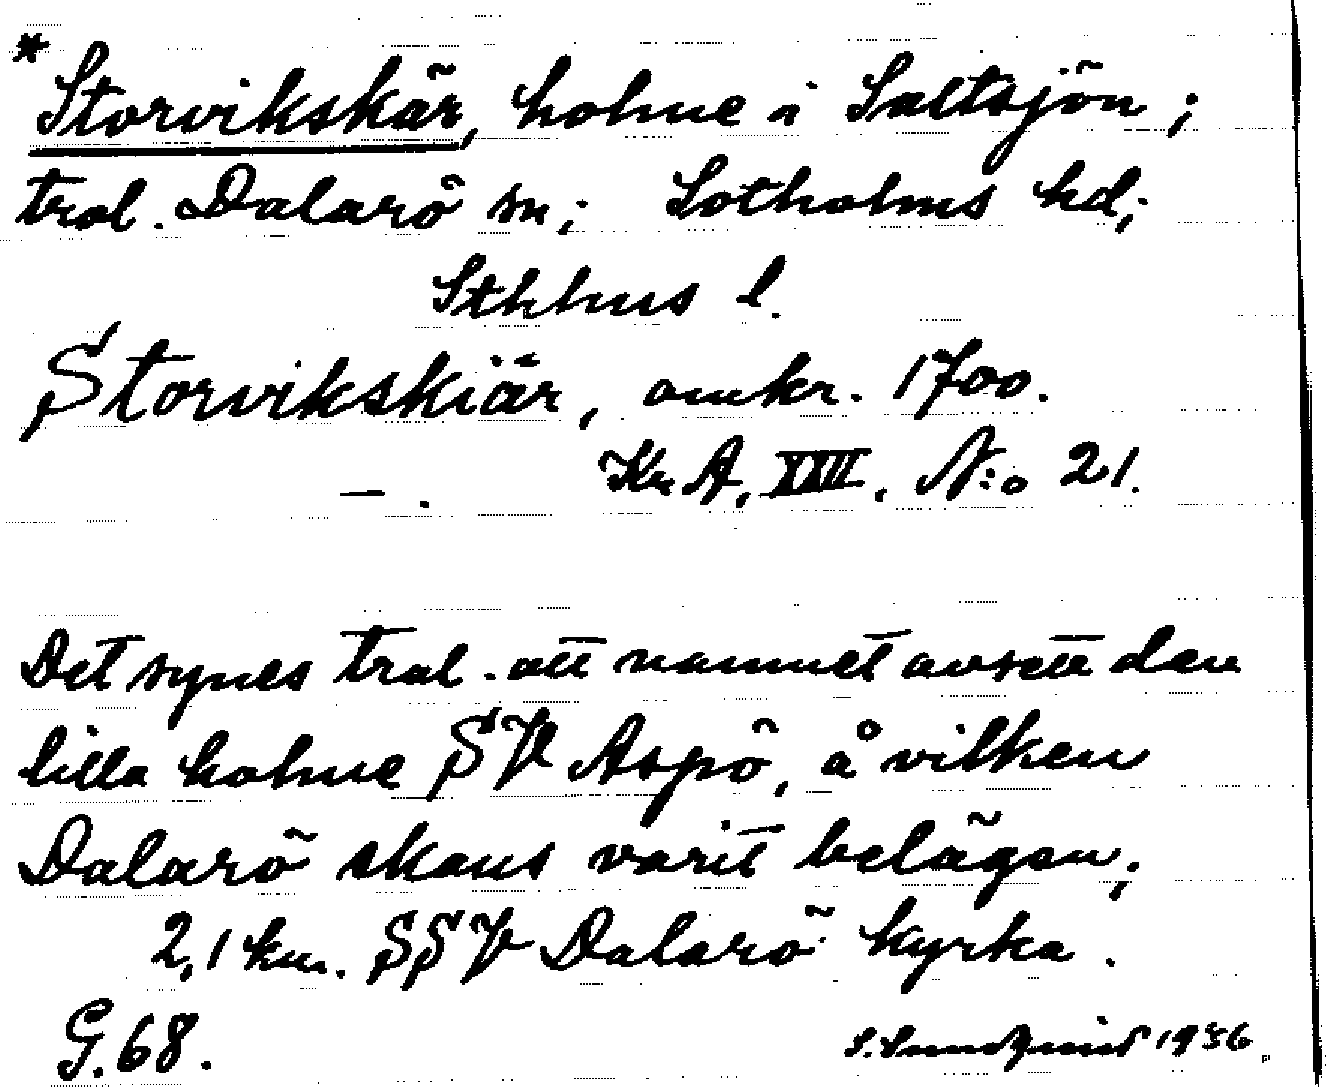 * Storvikskär, holme i Saltsjön;
trol. Dalarö sn; Sotholms hd;
Sthlms l.
Storvikskiär, omkr. 1700.
Kr A, XXII, N:o 21.
— .
Det synes trol. att namnet avsett den
lilla holme SV Aspö, å vilken
Dalarö skans varit belägen;
2,1 km. SSV Dalarö kyrka.
G. 68.
S. Sundquist 1936